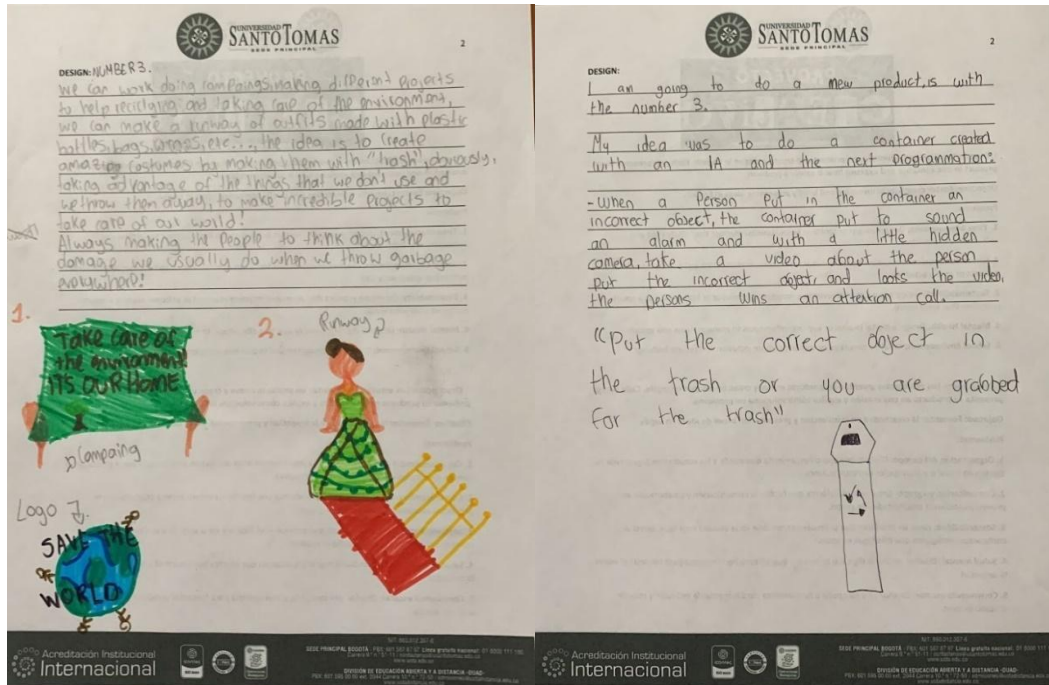 UNIVERSIDAD
SANTO TOMAS
SEDE PRINCIPAL
2
DESIGN: NUMBER 3.
We can work doing campaings, making different projects
to help reciclying and taking care of the environment,
we can make a runway of outfits made with plastic
bottles, bags, etc..., the idea is to create
amazing costumes by making them with "trash", obviously,
taking advantage of the things that we don't use and
we throw them away, to make incredible projects to
take care of our world!
Always making the people to think about the
damage we usually do when we throw garbage
everywhere!
1.
Take care of
the environment!
IT'S OUR HOME
Campaing
2.
Runway
Logo
SAVE THE
WORLD
Acreditación Institucional
Internacional
SEDE PRINCIPAL BOGOTÁ
DIVISIÓN DE EDUCACIÓN ABIERTA Y A DISTANCIA -DUAD-
UNIVERSIDAD
SANTO TOMAS
SEDE PRINCIPAL
2
DESIGN:
I am going to do a mew product, is with
the number 3.
My idea was to do a container created
with an IA and the next programmation:
- When a Person Put in the container an
incorrect object, the container put to sound
an alarm and with a little hidden
camera, take a video about the person
put the incorrect object, and looks the video,
the persons wins an attention call.
"Put the correct object in
the trash or you are grabbed
for the trash"
Acreditación Institucional
Internacional
SEDE PRINCIPAL BOGOTÁ
DIVISIÓN DE EDUCACIÓN ABIERTA Y A DISTANCIA -DUAD-